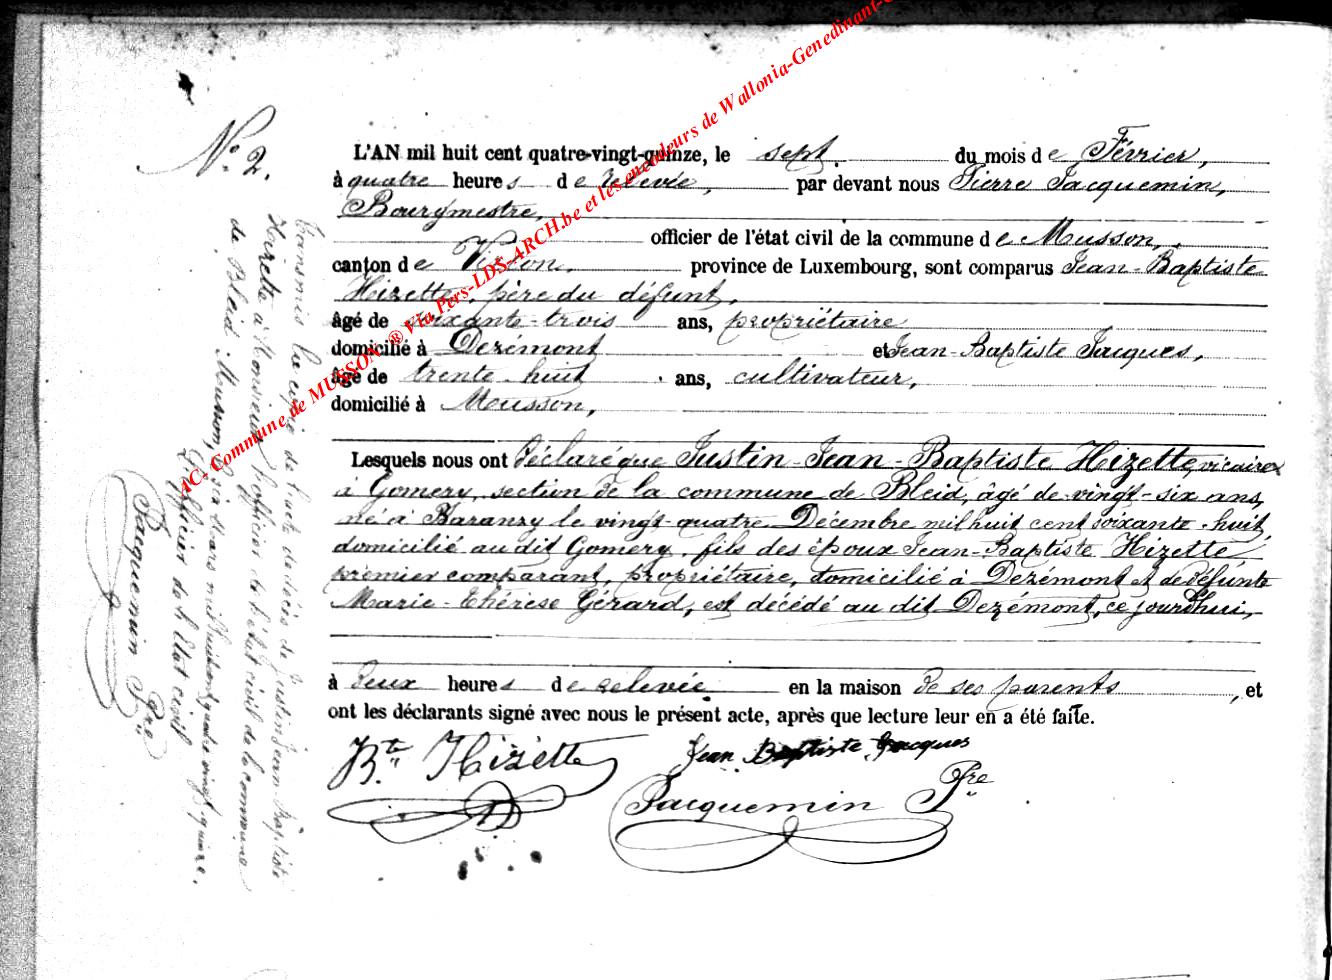 N° 2.
L'AN mil huit cent quatre-vingt-quinze, le sept. du mois de Février,
à quatre heures de relevée, par devant nous Pierre Jacquemin,
Bourgmestre,
officier de l'état civil de la commune de Musson,
canton de Virton, province de Luxembourg, sont comparus Jean-Baptiste
Hizette, père du défunt,
âgé de soixante-trois ans, propriétaire
domicilié à Dezémont et Jean-Baptiste Jacques,
âgé de trente-huit ans, cultivateur,
domicilié à Musson,
Lesquels nous ont déclaré que Justin-Jean-Baptiste Hizette, vicaire
à Gomery, section de la commune de Bleid, âgé de vingt-six ans,
né à Baranzy le vingt-quatre Décembre mil huit cent soixante-huit,
domicilié au dit Gomery, fils des époux Jean-Baptiste Hizette
premier comparant, propriétaire, domicilié à Dezémont et de défunte
Marie-Thérèse Gérard, est décédé au dit Dezémont, ce jourd'hui,
à deux heures de relevée en la maison de ses parents, et
ont les déclarants signé avec nous le présent acte, après que lecture leur en a été faite.
Bte Hizette
Jean Baptiste Jacques
Jacquemin Pre
Transmis la copie de l'acte de décès de Justin Jean Baptiste
Hizette à Monsieur l'officier de l'état civil de la commune
de Bleid. Musson, le six mars mil huit cent quatre vingt quinze.
L'officier de l'Etat civil
Jacquemin Pre
AC- Commune de MUSSON ® Via Pers-LDS-ARCH.be et les encodeurs de Wallonia-Genedinant-